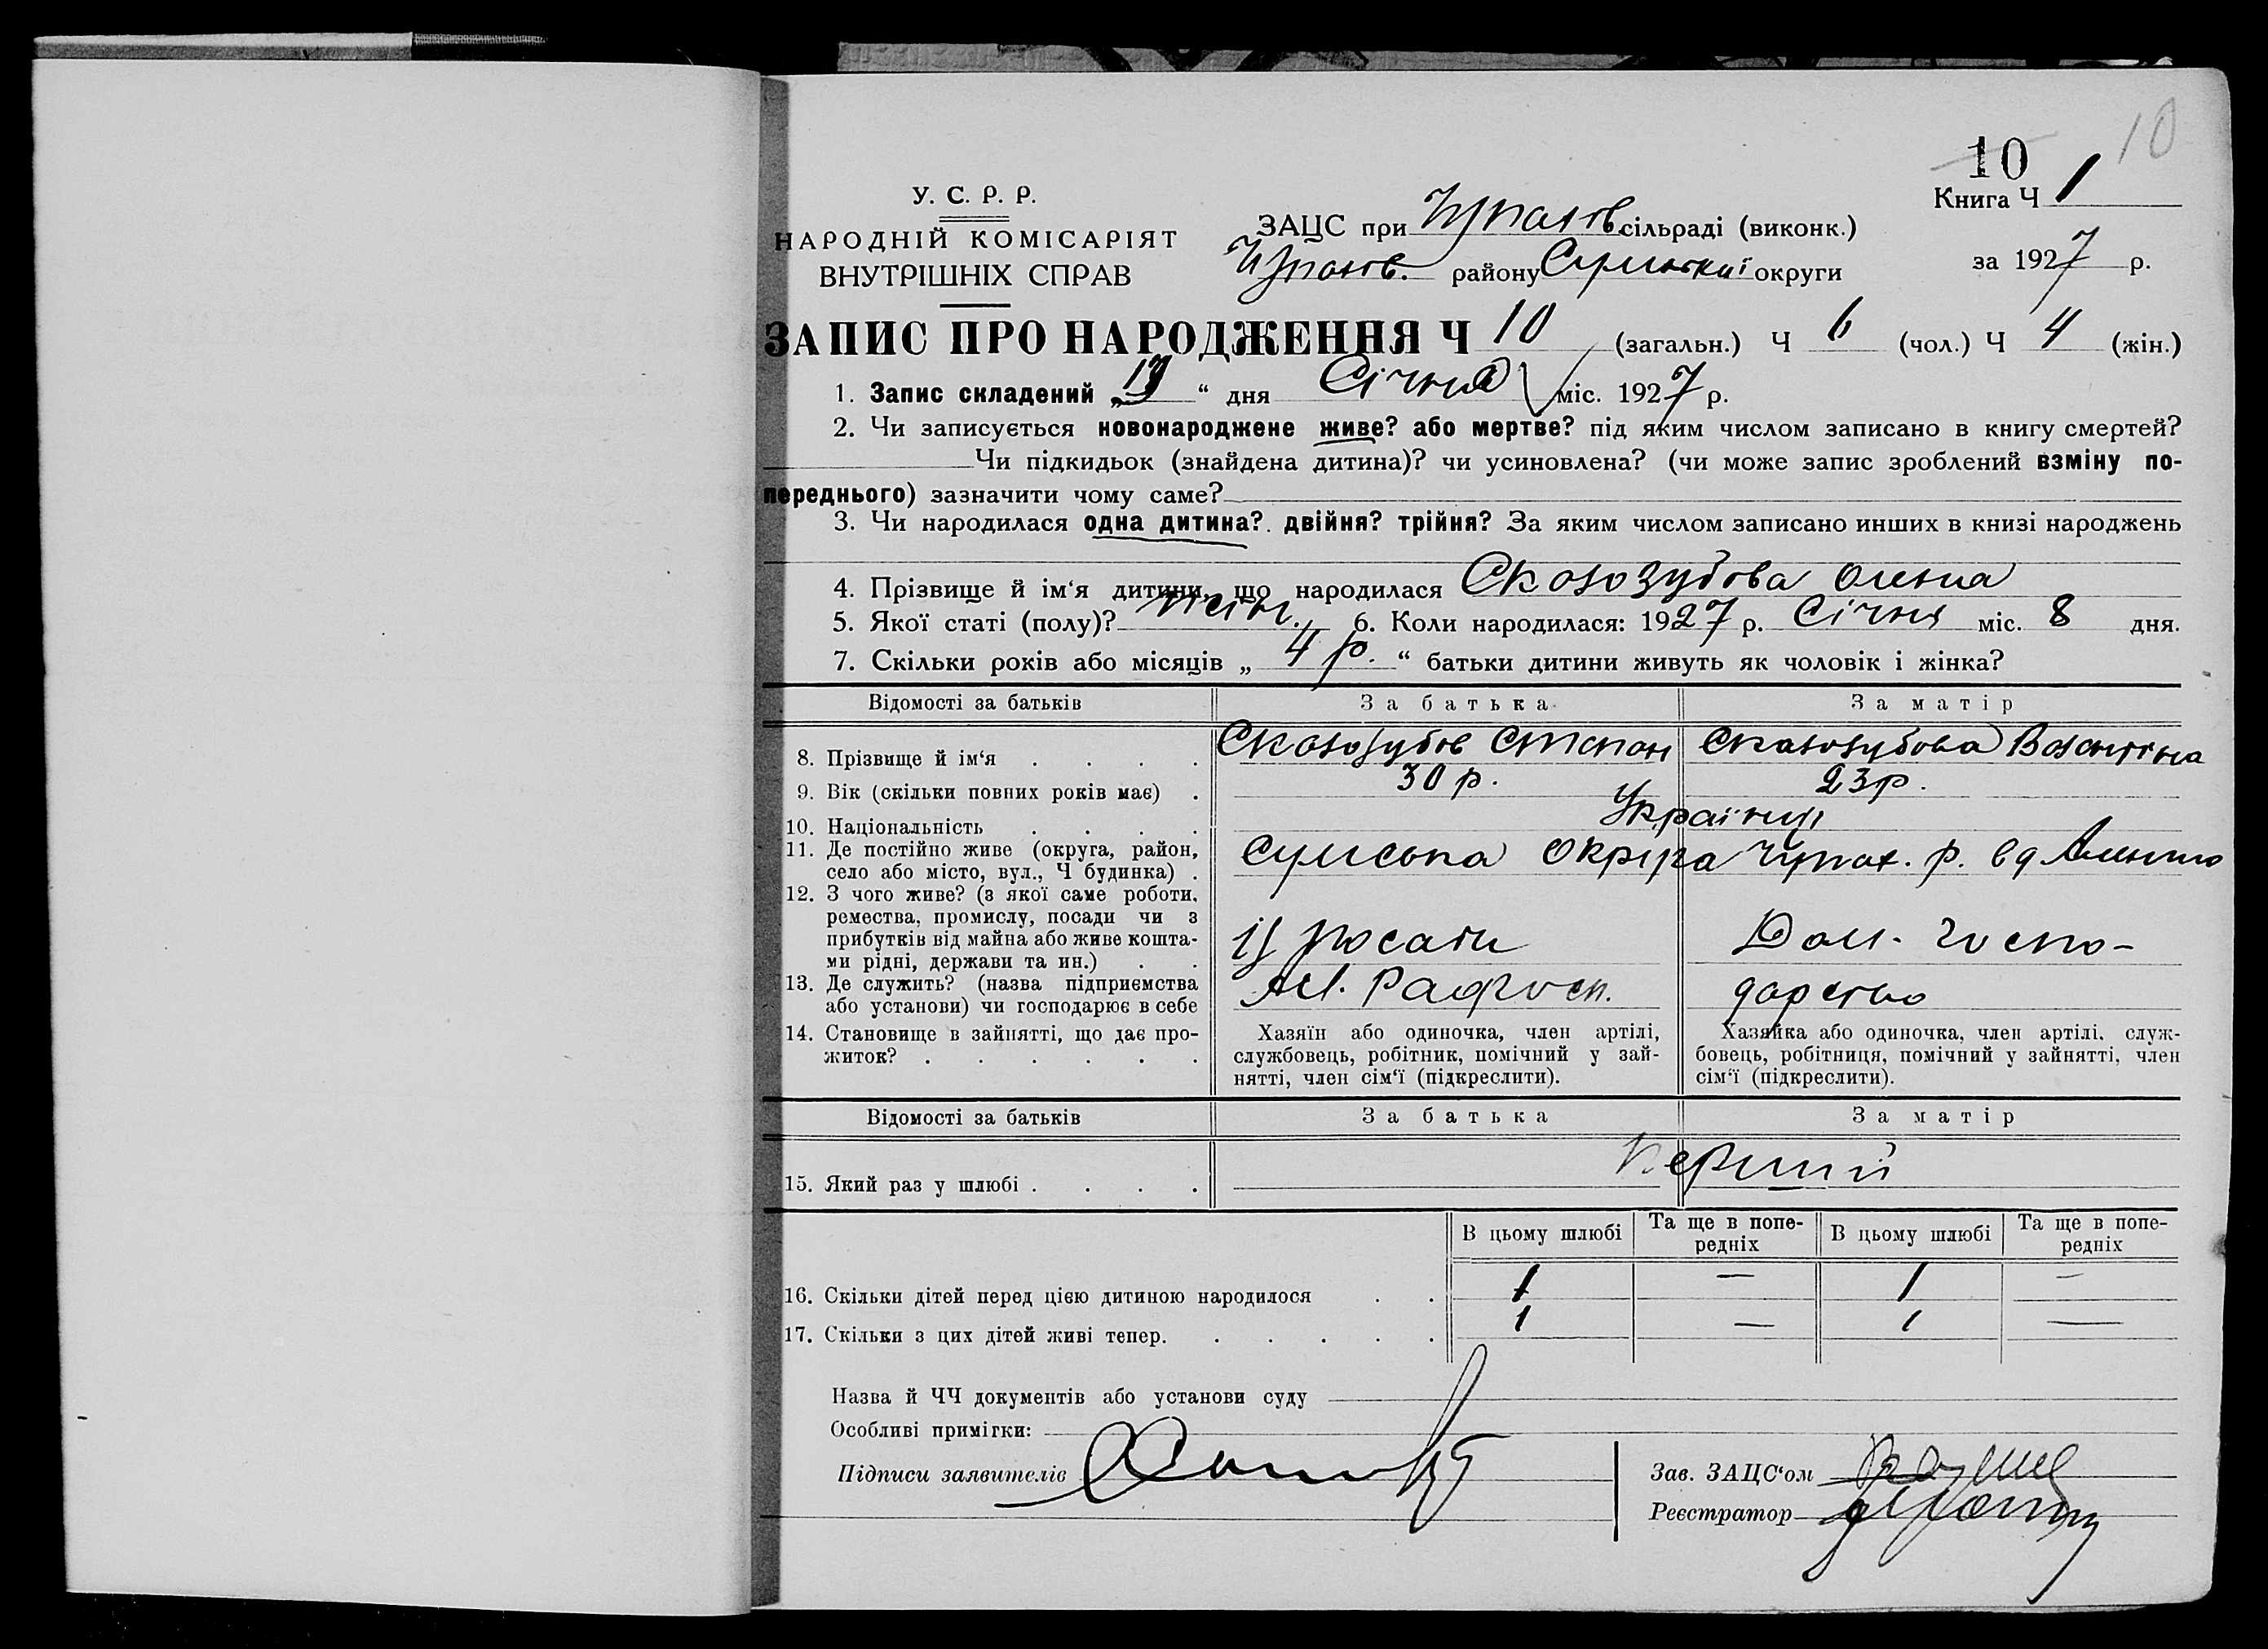 10
10
У. С. Р. Р.
НАРОДНІЙ КОМІСАРІЯТ
ВНУТРІШНІХ СПРАВ
ЗАЦС при сільраді (виконк.)
району Сумської округи
Книга Ч 1
за 1927 р.
ЗАПИС ПРО НАРОДЖЕННЯ Ч 10 (загальн.) Ч 6 (чол.) Ч 4 (жін.)
1. Запис складений „ “ дня Січня міс. 1927 р.
2. Чи записується новонароджене живе? або мертве? під яким числом записано в книгу смертей?
Чи підкидьок (знайдена дитина)? чи усиновлена? (чи може запис зроблений взміну по-
переднього) зазначити чому саме?
3. Чи народилася одна дитина? двійня? трійня? За яким числом записано инших в книзі народжень
4. Прізвище й ім‘я дитини, що народилася Скалозубова Олена
5. Якої статі (полу)? жін. 6. Коли народилася: 1927 р. Січня міс. 8 дня.
7. Скільки років або місяців „ 4 р. “ батьки дитини живуть як чоловік і жінка?
Відомості за батьків За батька За матір
8. Прізвище й ім‘я . . . . Скалозубов Степан Скалозубова Валентина
9. Вік (скільки повних років має) . 30 р. 23 р.
10. Національність . . . . Українці
11. Де постійно живе (округа, район,
село або місто, вул., Ч будинка) . Сумська Округа р.
12. З чого живе? (з якої саме роботи,
ремества, промислу, посади чи з
прибутків від майна або живе кошта-
ми рідні, держави та ин.) . . із посади Дом. госпо-
13. Де служить? (назва підприємства
або установи) чи господарює в себе Радгосп. дарство
14. Становище в зайнятті, що дає про-
житок? . . . . . .
Хазяїн або одиночка, член артілі,
службовець, робітник, помічний у зай-
нятті, член сім‘ї (підкреслити).
Хазяйка або одиночка, член артілі, служ-
бовець, робітниця, помічний у зайнятті, член
сім‘ї (підкреслити).
Відомості за батьків За батька За матір
15. Який раз у шлюбі . . . . Перший
В цьому шлюбі Та ще в попе-
редніх В цьому шлюбі Та ще в попе-
редніх
16. Скільки дітей перед цією дитиною народилося . . 1 — 1 —
17. Скільки з цих дітей живі тепер. . . . . . 1 — 1 —
Назва й ЧЧ документів або установи суду
Особливі примітки:
Підписи заявителів
Зав. ЗАЦС‘ом
Реєстратор